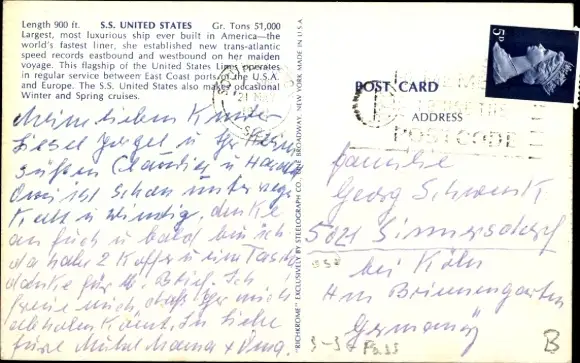 Length 900 ft. S.S. UNITED STATES Gr. Tons 51,000
Largest, most luxurious ship ever built in America—the
world's fastest liner, she established new trans-atlantic
speed records eastbound and westbound on her maiden
voyage. This flagship of the United States Lines operates
in regular service between East Coast ports of the U.S.A.
and Europe. The S.S. United States also makes occasional
Winter and Spring cruises.
Meine lieben Kinder
Liesel u Ihr
süßen Claudia u
Omi ist schon unterwegs
Kalt u windig, denke
an Euch u bald bin ich
da habe 2 Koffer u eine Tasche
danke für Brief. Ich
freue mich daß Ihr mich
abholen Könnt. In Liebe
Eure Mama + Oma.
"RICHKROME" EXCLUSIVELY BY STEELOGRAPH CO. BROADWAY, NEW YORK MADE IN U.S.A.
5D
POST CARD
ADDRESS
POSTCODE
Familie
Georg Schwenk
5021 Sinnersdorf
bei Köln
Am Brunnengarten
Germany
B